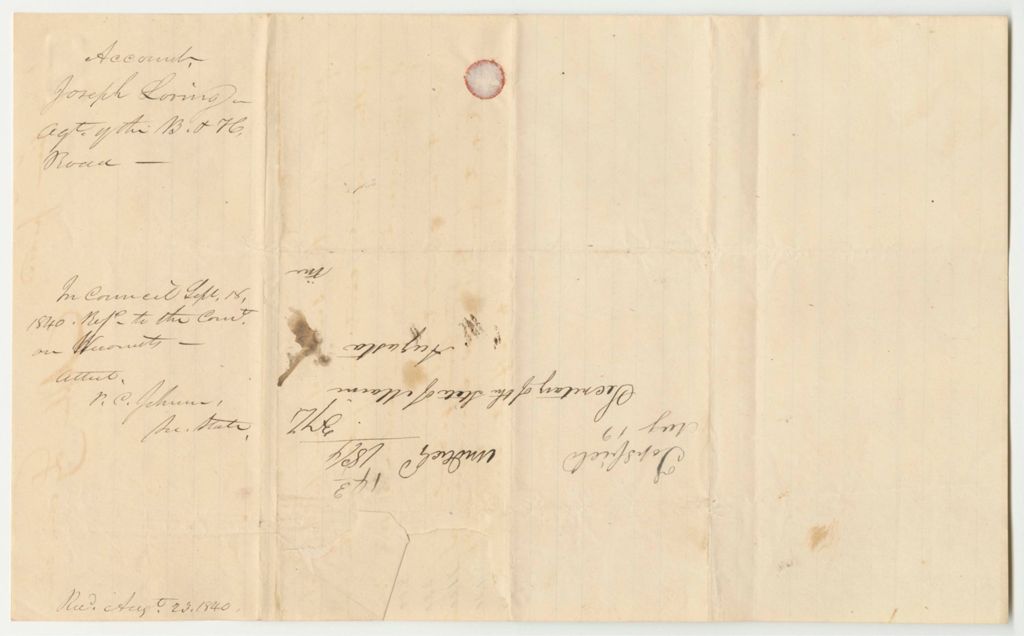 Account,
Joseph Loring -
Agt. of the B. & H.
Road -
In Council Sept. 18,
1840. Refd. to the Comt.
on Accounts -
Attest,
P. C. Johnson,
Sec. State,
Recd. Augt. 23. 1840.
Topsfield
Aug 19
14 3
18 3/4
Secretary of the State of Maine
Augusta
Me